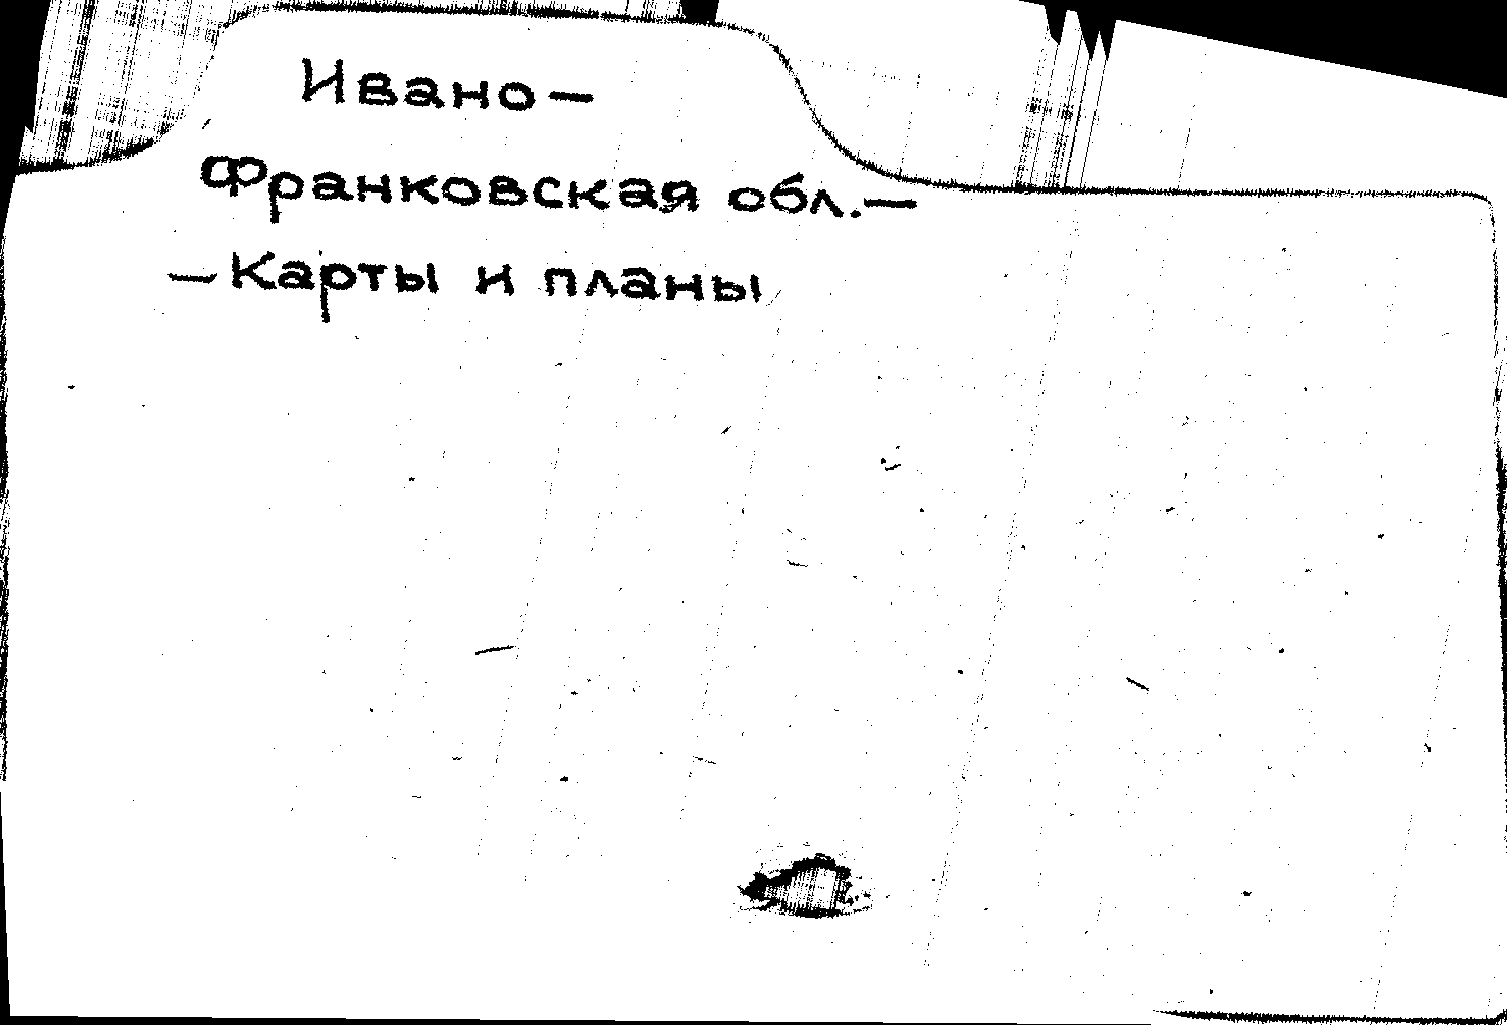 Ивано–
Франковская обл.–
–Карты и планы